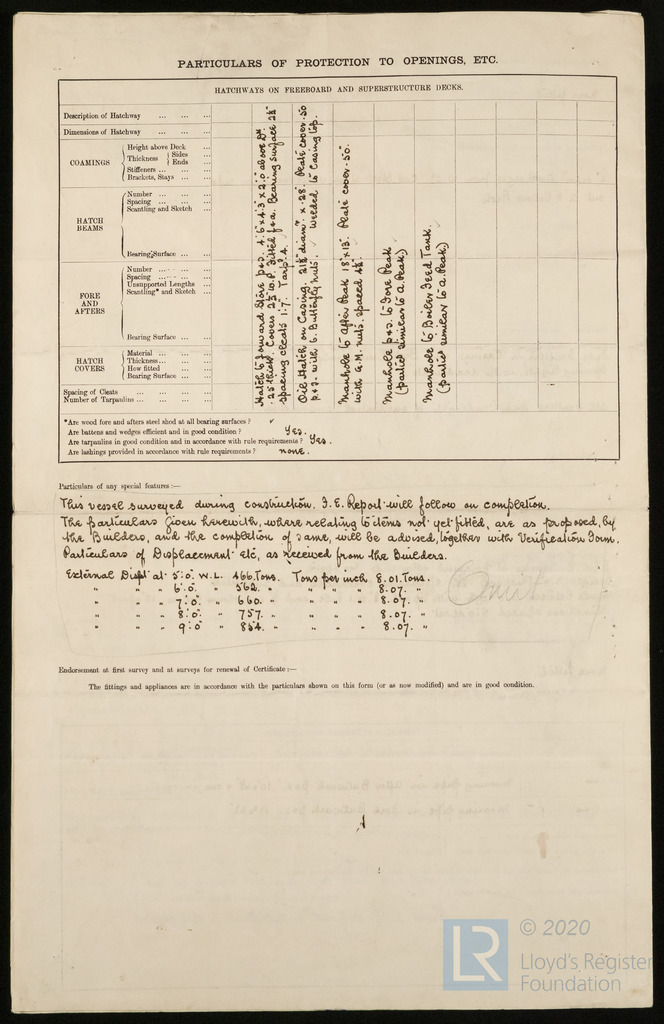 PARTICULARS OF PROTECTION TO OPENINGS, ETC.
HATCHWAYS ON FREEBOARD AND SUPERSTRUCTURE DECKS.
Description of Hatchway ... ... ...
Dimensions of Hatchway ... ... ...
COAMINGS
Height above Deck ...
Thickness { Sides ...
Ends ...
Stiffeners ... ... ...
Brackets, Stays ... ...
HATCH BEAMS
Number ... ... ...
Spacing ... ... ...
Scantling and Sketch ...
Bearing Surface ... ...
FORE AND AFTERS
Number ... ... ...
Spacing ... ... ...
Unsupported Lengths ...
Scantling* and Sketch ...
Bearing Surface ...
HATCH COVERS
Material ... ... ...
Thickness ... ... ...
How fitted ... ...
Bearing Surface ... ...
Spacing of Cleats ... ... ...
Number of Tarpaulins ... ... ...
Hatch to Forward Store p&s. 4'.6"x4'.3"x2'.0" above Dk.
.25" thick. Covers 2½" W.P. fitted f&a. Bearing surface 2½"
spacing cleats 1'.7". Tarpl 4.
Oil Hatch on Casing. 21½" diamr x .28". Plate cover .50
p.&s. with 6. Butterfly nuts. Welded to Casing top.
Manhole to After Peak 18"x13". Plate cover .50".
with G.M. nuts. spaced 4½".
Manhole p&s. to Fore Peak
(partics similar to A. Peak)
Manhole to Boiler Feed Tank.
(partics similar to A. Peak)
*Are wood fore and afters steel shod at all bearing surfaces? ✓
Are battens and wedges efficient and in good condition? Yes.
Are tarpaulins in good condition and in accordance with rule requirements? Yes.
Are lashings provided in accordance with rule requirements? none.
Particulars of any special features :—
This vessel surveyed during construction. F.E. Report will follow on completion.
The particulars given herewith, where relating to items not yet fitted, are as proposed, by
the Builders, and the completion of same, will be advised, together with Verification Form.
Particulars of Displacement etc, as received from the Builders.
External Displt at 5'.0". W.L. 466. Tons. Tons per inch 8.01. Tons.
" " " 6'.0". " 562. " " " " 8.07. "
" " " 7'.0". " 660. " " " " 8.07. "
" " " 8'.0". " 757. " " " " 8.07. "
" " " 9'.0" " 854. " " " " 8.07. "
Omit
Endorsement at first survey and at surveys for renewal of Certificate :—
The fittings and appliances are in accordance with the particulars shown on this form (or as now modified) and are in good condition.
LR
© 2020
Lloyd's Register
Foundation